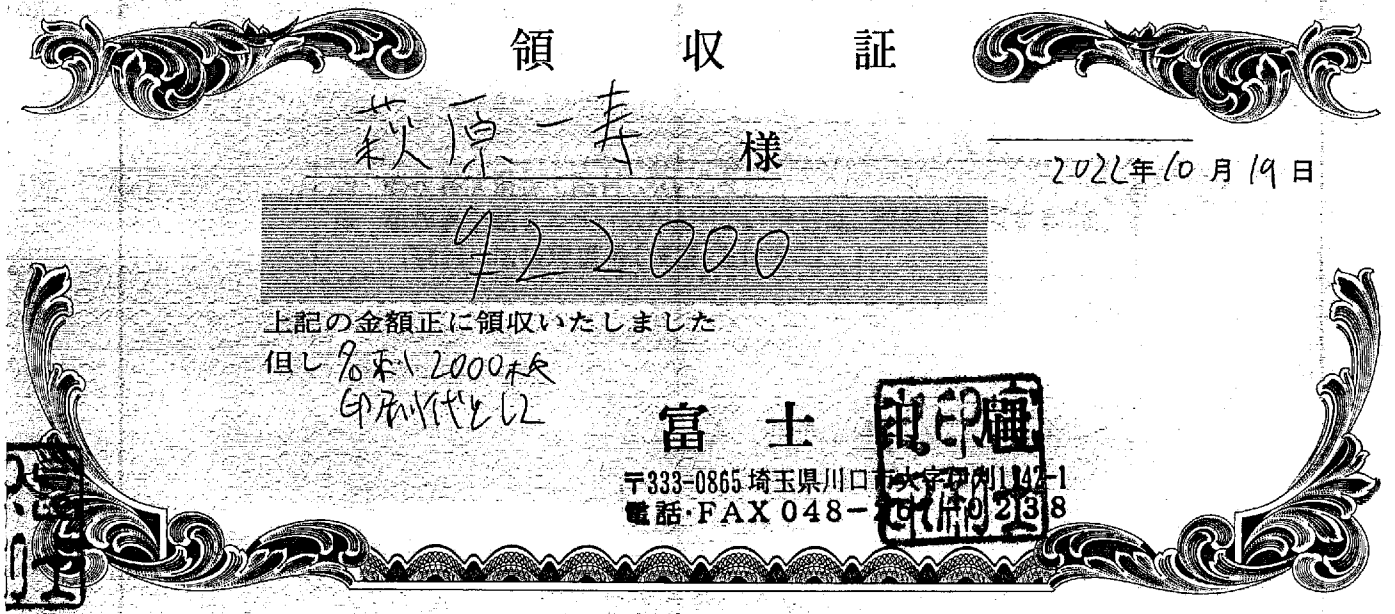 領収証
萩原一寿 様
2022年10月19日
¥22000
上記の金額正に領収いたしました
但し 名刺 2000枚
印刷代として
富士
〒333-0865 埼玉県川口市大字伊刈1142-1
電話・FAX 048-